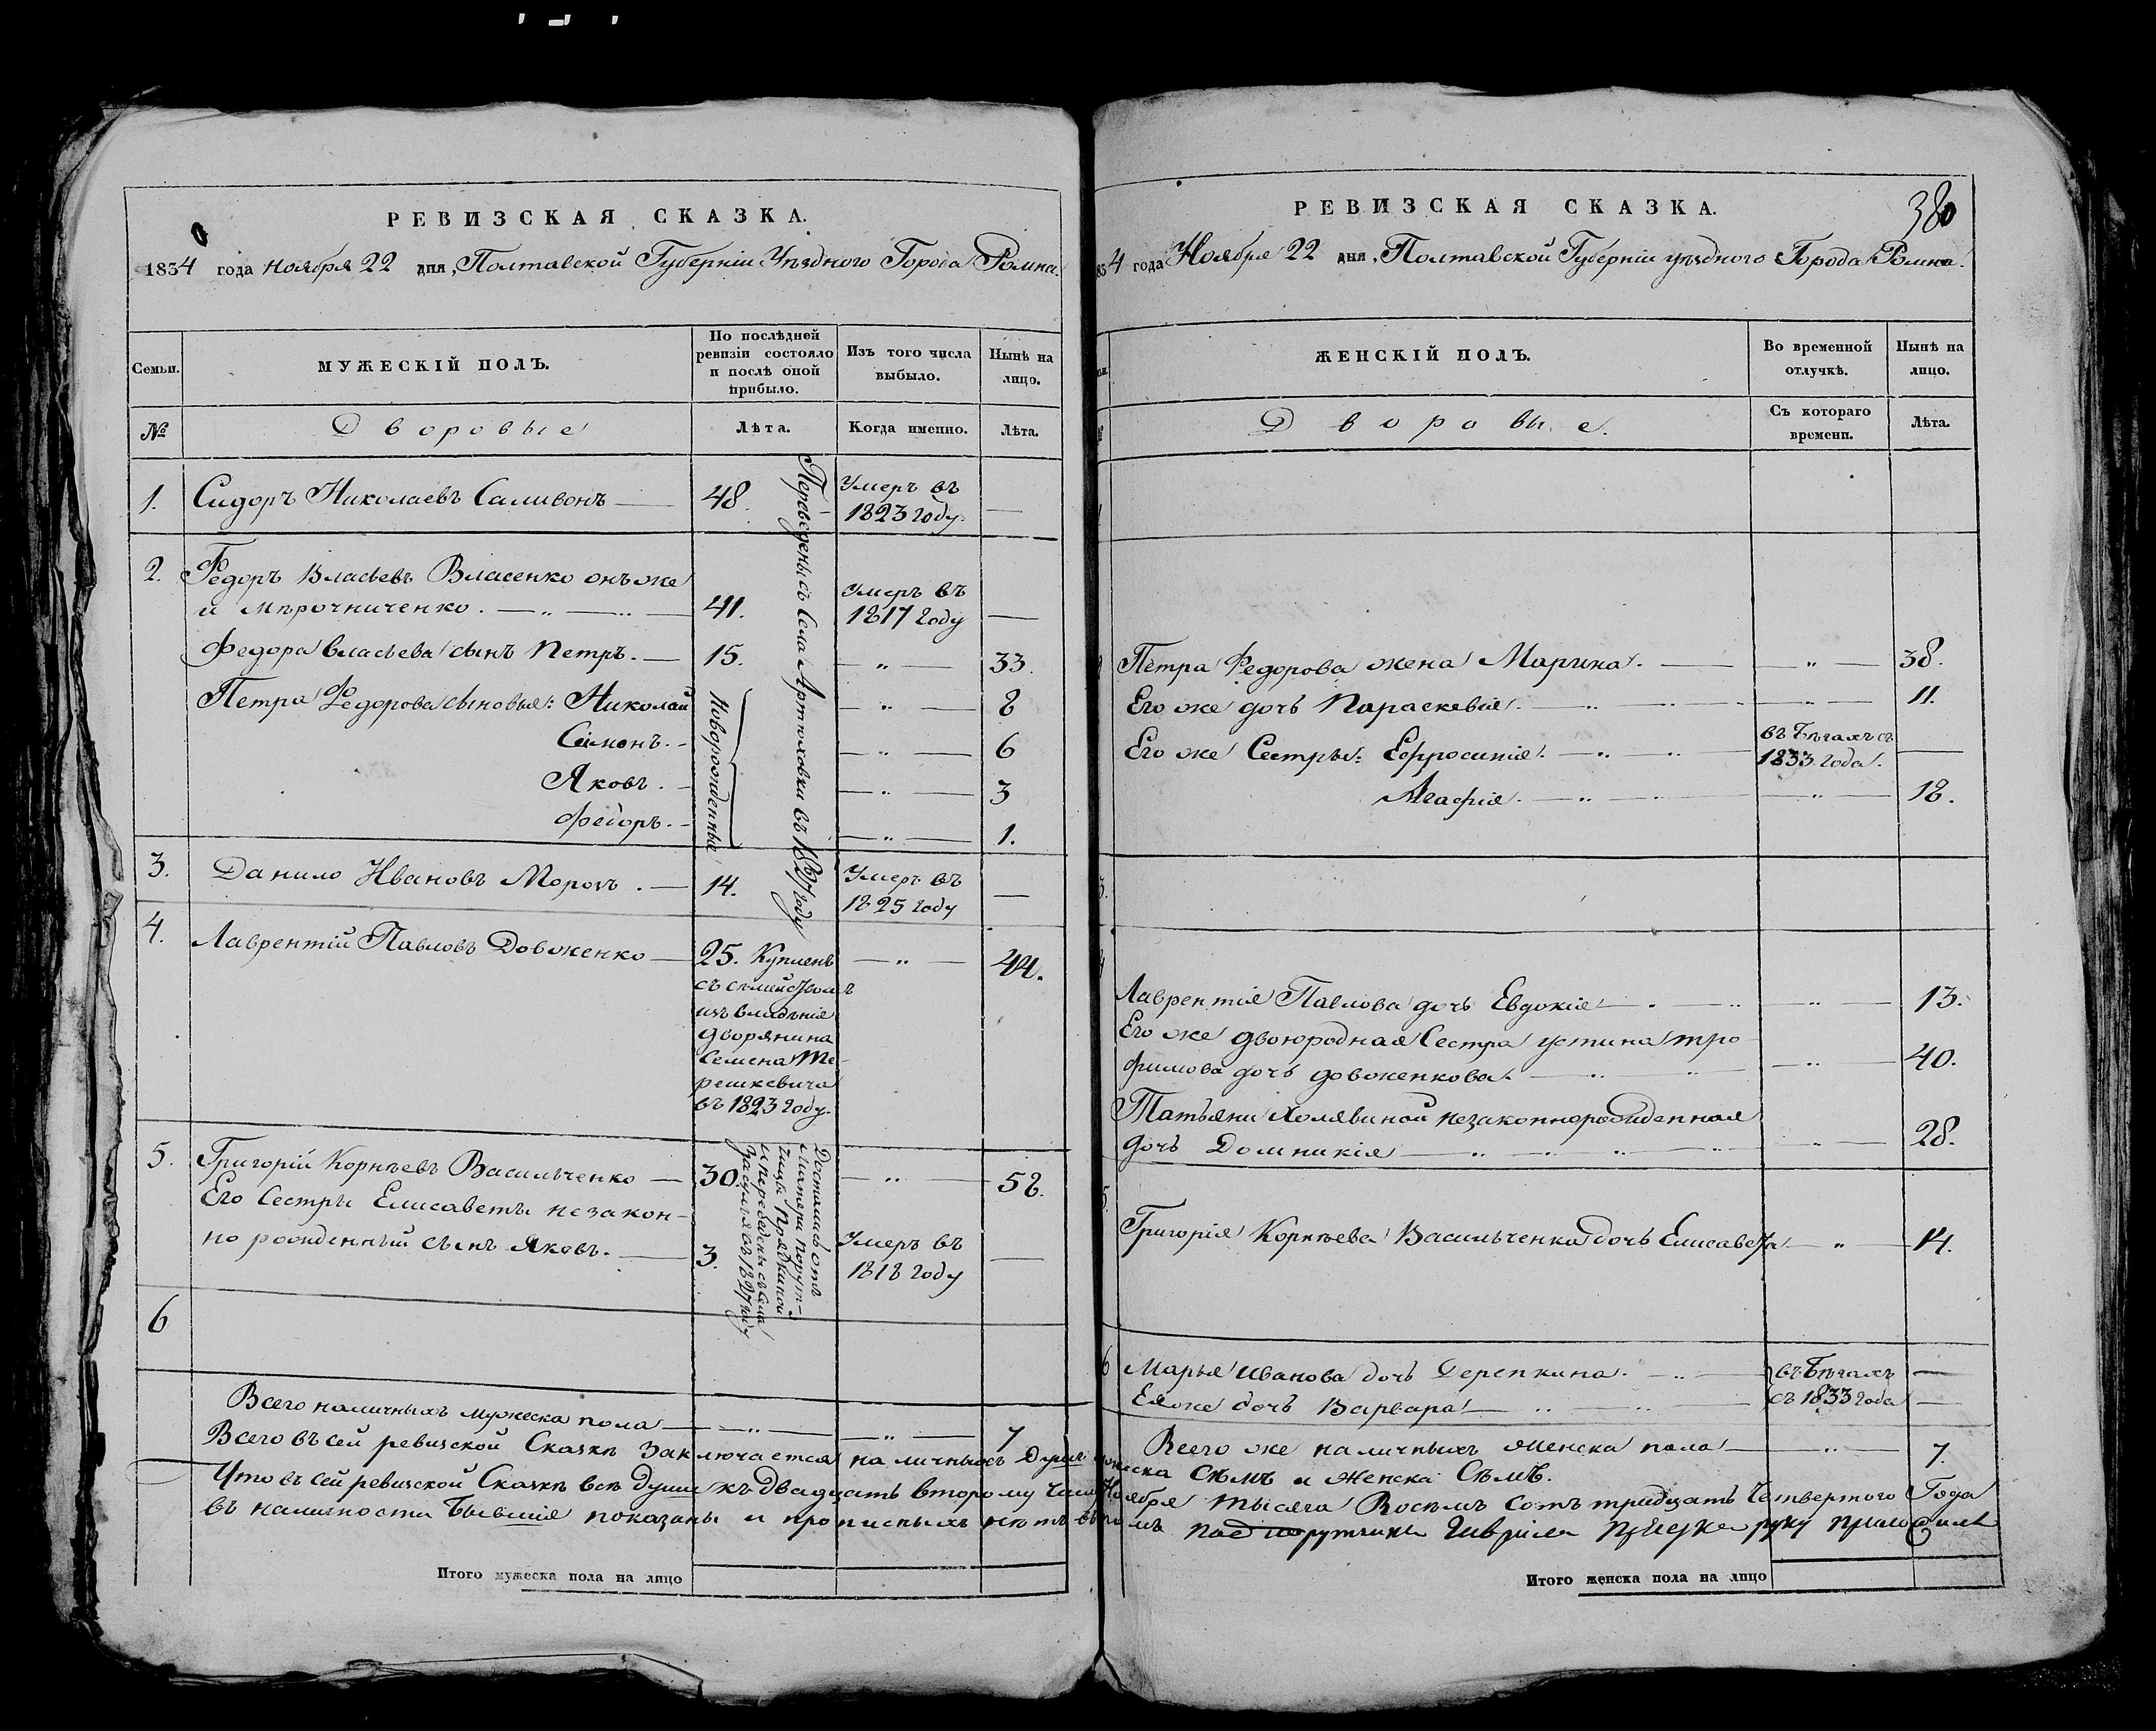 РЕВИЗСКАЯ СКАЗКА.
1834 года Ноября 22 дня, Полтавской Губерніи Уѣздного Города Ромна.
Семьи.
МУЖЕСКІЙ ПОЛЪ.
По послѣдней ревизіи состояло и послѣ оной прибыло.
Изъ того числа выбыло.
Нынѣ на лицо.
№
Дворовые
Лѣта.
Когда именно.
Лѣта.
1. Сидоръ Николаевъ Саливонъ 48. Умеръ въ 1823 году.
Переведены съ Села Артюховки въ 1827 году
2. Федоръ Власьевъ Власенко онъ же
и Мирочниченко. 41. Умеръ въ 1817 году
Федора Власьева сынъ Петръ. 15. 33.
Петра Федорова сыновья: Николай 8
Симонъ. 6
Яковъ. 3
Федоръ. 1.
Новорожденные
3. Данило Ивановъ Морозъ. 14. Умеръ въ 1825 году
4. Лаврентій Павловъ Довженко 25. Купленъ 44.
съ семействомъ
изъ владѣнія
дворянина
Семена Те-
решкевича
въ 1823 году.
5. Григорій Корнѣевъ Васильченко 30. 52.
Его Сестры Елисаветы незакон-
но рожденный сынъ Яковъ. 3. Умеръ въ 1818 году
Достались отъ
матери поруч-
чицы
и переведены съ села
въ 1827 году
6
Всего наличныхъ мужеска пола 7
Итого мужеска пола на лицо
РЕВИЗСКАЯ СКАЗКА.
380
834 года Ноября 22 дня, Полтавской Губерніи уѣздного Города Ромна.
ЖЕНСКІЙ ПОЛЪ.
Во временной отлучкѣ.
Нынѣ на лицо.
Дворовые.
Съ котораго времени.
Лѣта.
Петра Федорова жена Марина. 38.
Его же дочь Параскевія. 11.
Его же Сестры: Ефросинія. въ бѣгахъ съ 1833 года.
Агафія. 18.
3.
4
Лаврентія Павлова дочь Евдокія 13.
Его же двоюродная Сестра устина тро
фимова дочь довженкова. 40.
Татьяны Холявиной незаконнорожденная
дочь Домникія 28.
5.
Григорія Корнѣева Васильченка дочь Елисавета 14.
6 Марья Иванова дочь Дерепкина. въ бѣгахъ
Ея же дочь Варвара съ 1833 года
Всего же наличныхъ женска пола 7.
Всего въ сей ревизской Сказкѣ заключается наличныхъ душъ мужеска Сѣмъ и женска Сѣмъ.
Что въ сей ревизской Сказкѣ всѣ души къ двадцать второму числу Ноября тысяча Восемь сотъ тридцать Четвертого Года
въ наличности бывшія показаны и прописныхъ нѣтъ въ томъ подпоручикъ Гаврило руку приложилъ
Итого женска пола на лицо